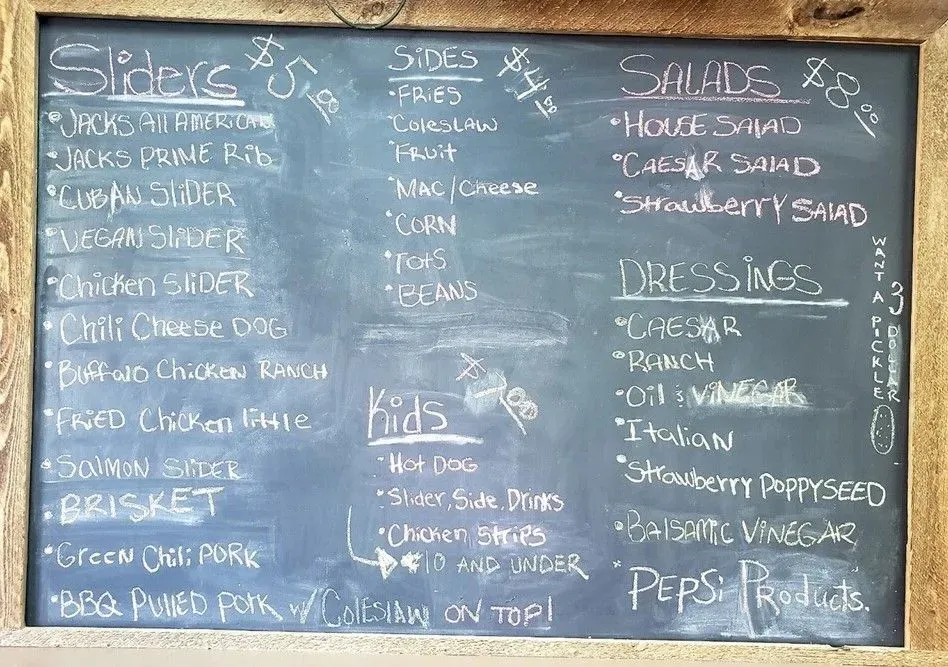 Sliders $5.00
• JACKS All AMERICAN
• JACKS PRIME Rib
• CUBAN SLIDER
• VEGAN SLIDER
• Chicken SLIDER
Chili Cheese DOG
• Buffalo Chicken RANCH
• FRIED Chicken little
• SAlMON SLIDER
• BRISKET
• Green Chili PORK
• BBQ Pulled Pork w/ Coleslaw ON TOP!
SIDES $4.00
• FRIES
• Coleslaw
• Fruit
• MAC/Cheese
• CORN
• TOTS
• BEANS
Kids $ .00
• HOT DOG
• Slider, Side, Drinks
• Chicken Strips
10 AND UNDER
SALADS $8.00
• HOUSE SALAD
• CAESAR SALAD
• Strawberry SALAD
DRESSINGS
• CAESAR
• RANCH
• Oil & VINEGAR
• Italian
• Strawberry POPPYSEED
• BALSAMIC VINEGAR
• PEPSi Products.
WANT A PICKLE
3 DOLLAR